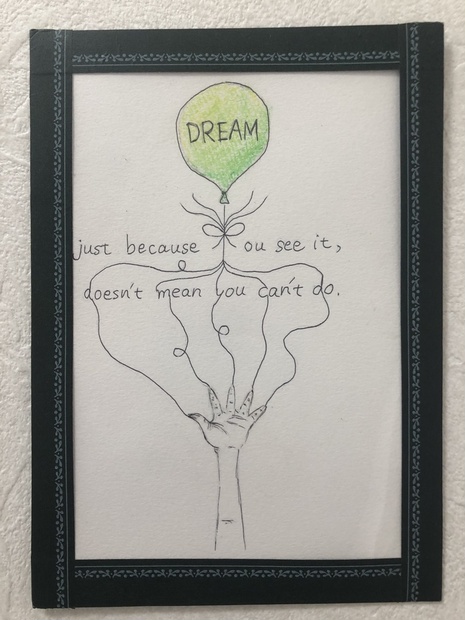 DREAM
just because you see it,
doesn't mean you can't do.